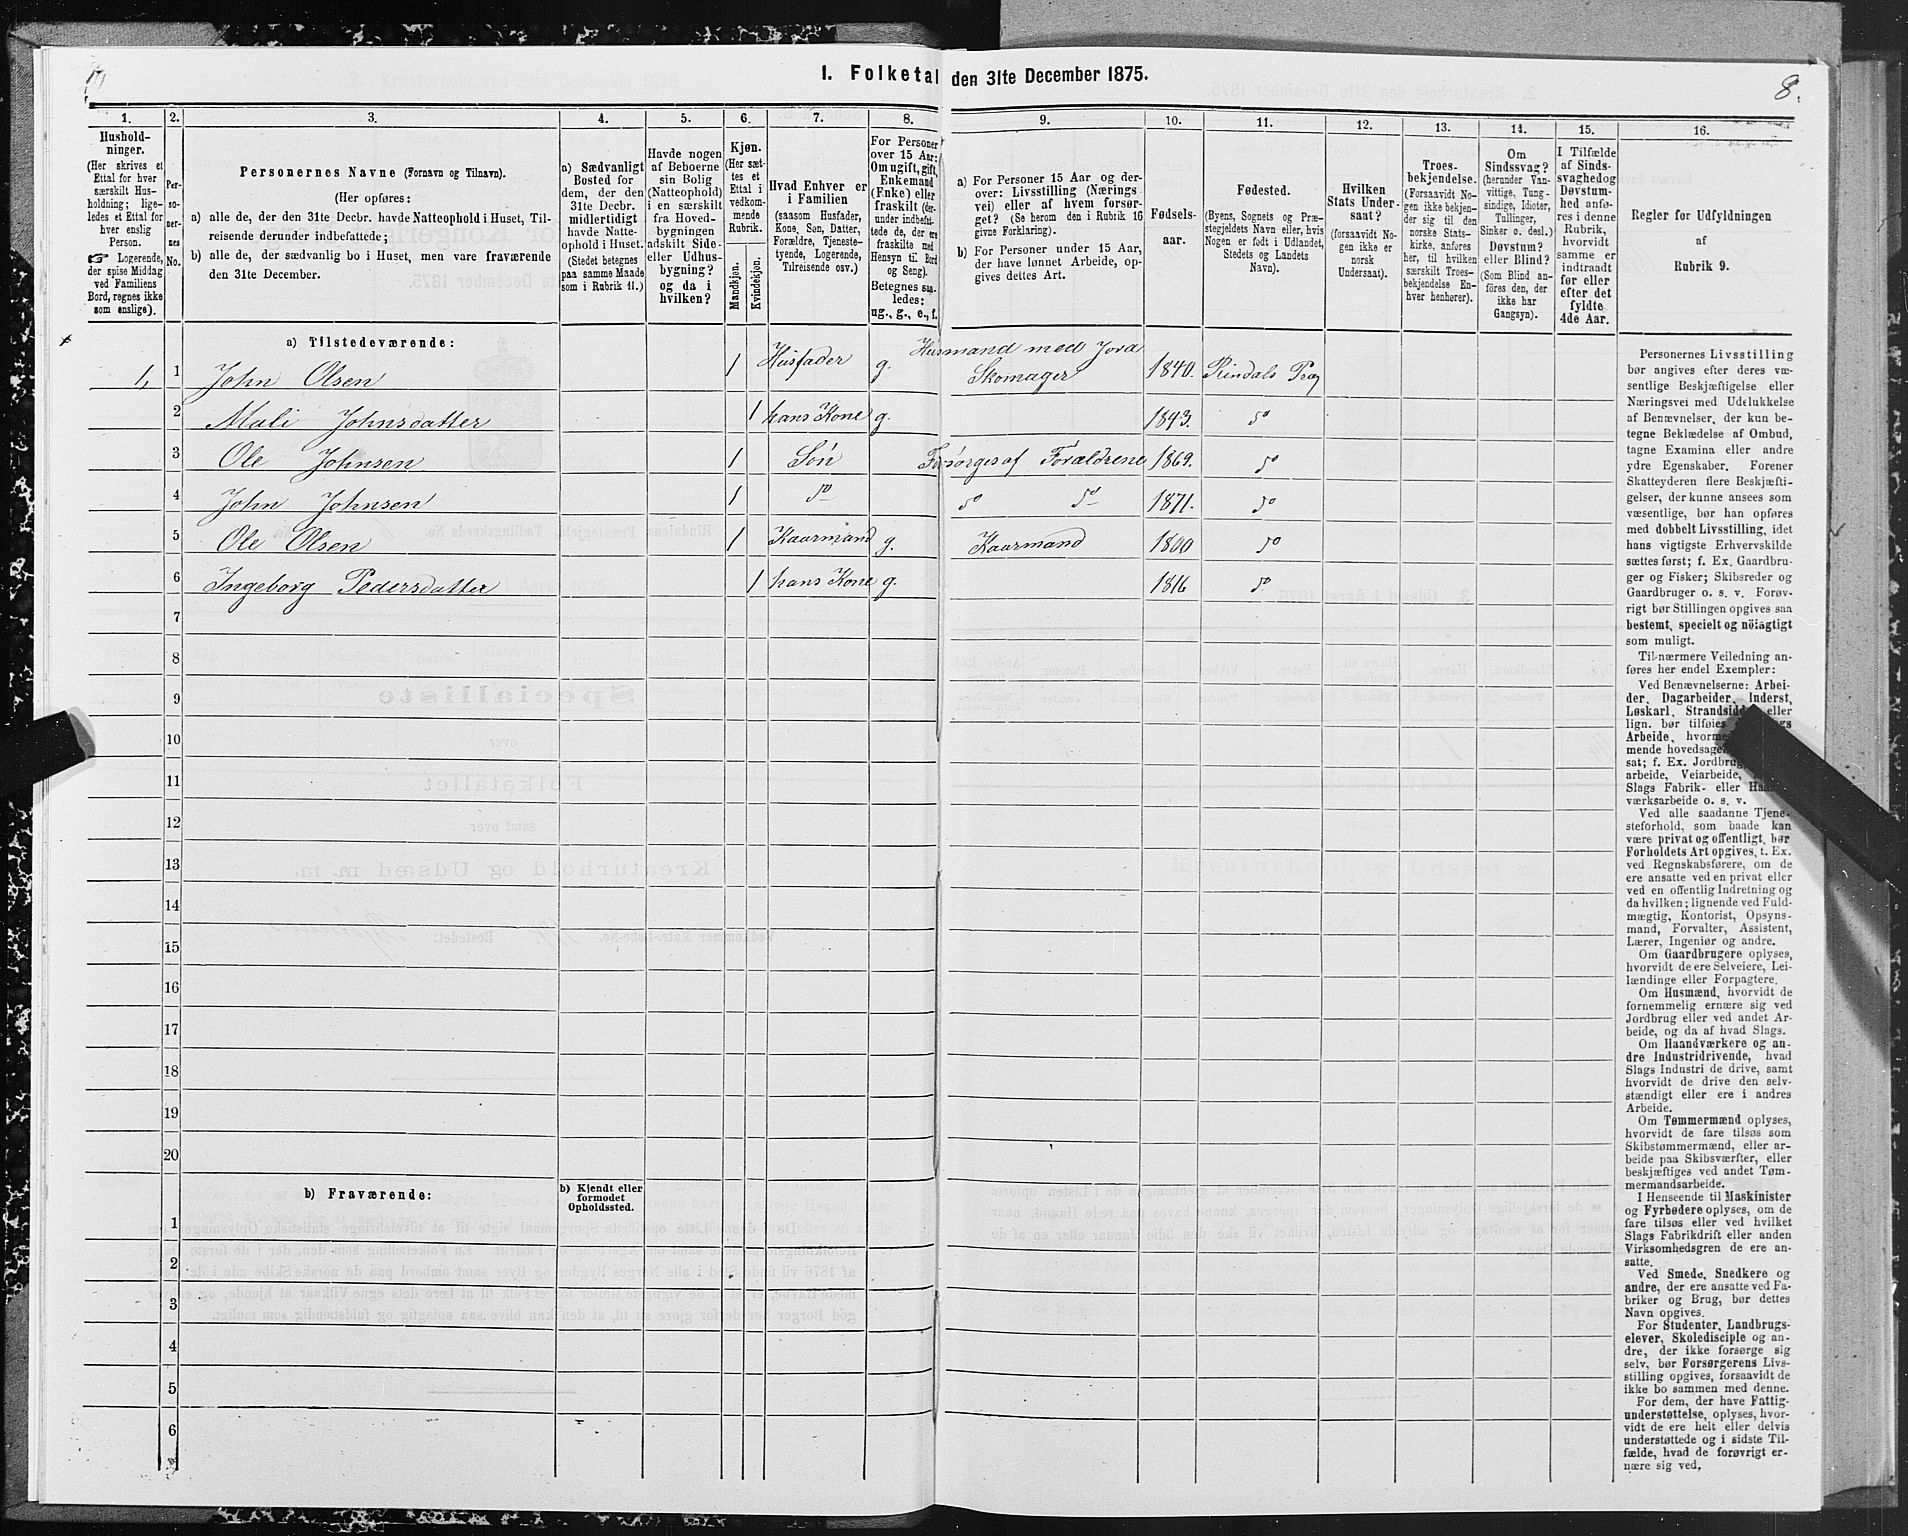 1. Folketal den 31te December 1875.
8.
1.
Hushold-
ninger.
(Her skrives et
Ettal for hver
særskilt Hus-
holdning; lige-
ledes et Ettal for
hver enslig
Person.
☞ Logerende,
der spise Middag
ved Familiens
Bord, regnes ikke
som enslige).
2.
Per-
so-
ner-
nes
No.
3.
Personernes Navne (Fornavn og Tilnavn).
(Her opføres:
a) alle de, der den 31te Decbr. havde Natteophold i Huset, Til-
reisende derunder indbefattede;
b) alle de, der sædvanlig bo i Huset, men vare fraværende
den 31te December.
4.
a) Sædvanligt
Bosted for
dem, der den
31te Decbr.
midlertidigt
havde Natte-
ophold i Huset.
(Stedet betegnes
paa samme Maade
som i Rubrik 11.)
5.
Havde nogen
af Beboerne
sin Bolig
(Natteophold)
i en særskilt
fra Hoved-
bygningen
adskilt Side-
eller Udhus-
bygning?
og da i
hvilken?
6.
Kjøn.
(Her sæt-
tes et
Ettal i
vedkom-
mende
Rubrik.
Mandkjøn.
Kvindekjøn.
7.
Hvad Enhver er
i Familien
(saasom Husfader,
Kone, Søn, Datter,
Forældre, Tjeneste-
tyende, Logerende,
Tilreisende osv.)
8.
For Personer
over 15 Aar:
Om ugift, gift,
Enkemand
(Enke) eller
fraskilt (der-
under indbefat-
tede de, der ere
fraskilte med
Hensyn til Bord
og Seng).
Betegnes saa-
ledes:
ug., g., e., f.
9.
a) For Personer 15 Aar og der-
over: Livsstilling (Nærings
vei) eller af hvem forsør-
get? (Se herom den i Rubrik 16
givne Forklaring).
b) For Personer under 15 Aar,
der have lønnet Arbeide, op-
gives dettes Art.
10.
Fødsels-
aar.
11.
Fødested.
(Byens, Sognets og Præ-
stegjeldets Navn eller, hvis
Nogen er født i Udlandet,
Stedets og Landets
Navn).
12.
Hvilken
Stats Under-
saat?
(forsaavidt No-
gen ikke er
norsk
Undersaat).
13.
Troes-
bekjendelse.
(Forsaavidt No-
gen ikke bekjen-
der sig til den
norske Stats-
kirke, anføres
her, til hvilken
særskilt Troes-
bekjendelse En-
hver henhører).
14.
Om
Sindssvag?
(herunder Van-
vittige, Tung-
sindige, Idioter,
Tullinger,
Sinker o. desl.)
Døvstum?
eller Blind?
(Som Blind an-
føres den, der
ikke har
Gangsyn).
15.
I Tilfælde
af Sinds-
svaghedog
Døvstum-
hed anfø-
res i denne
Rubrik,
hvorvidt
samme er
indtraadt
før eller
efter det
fyldte
4de Aar.
16.
Regler for Udfyldningen
af
Rubrik 9.
a) Tilstedeværende:
1, 1 John Olsen 1 Husfader g. Husmand med Jord
Skomager 1840. Rindals Præg
2 Mali Johnsdatter 1 hans Kone g. 1843. do
3 Ole Johnsen 1 Søn Forsørges af Forældrene 1869. do
4 John Johnsen 1 do do do 1871. do
5 Ole Olsen 1 Kaarmand g. Kaarmand 1800 do
6 Ingeborg Pedersdatter 1 hans Kone g. 1816 do
7
8
9
10
11
12
13
14
15
16
17
18
19
20
b) Fraværende:
b) Kjendt eller
formodet
Opholdssted.
1
2
3
4
5
6
Personernes Livsstilling
bør angives efter deres væ-
sentlige Beskjæftigelse eller
Næringsvei med Udelukkelse
af Benævnelser, der kun be-
tegne Beklædelse af Ombud,
tagne Examina eller andre
ydre Egenskaber. Forener
Skatteyderen flere Beskjæfti-
gelser, der kunne ansees som
væsentlige, bør han opføres
med dobbelt Livsstilling, idet
hans vigtigste Erhvervskilde
sættes først; f. Ex. Gaardbru-
ger og Fisker; Skibsreder og
Gaardbruger o. s. v. Forøv-
rigt bør Stillingen opgives saa
bestemt, specielt og nöiagtigt
som muligt.
Til nærmere Veiledning an-
føres her endel Exempler:
Ved Benævnelserne: Arbei-
der, Dagarbeider, Inderst,
Løskarl, Strandsidder eller
lign. bør tilføies
Arbeide,
mende
sat; f. Ex.
arbeide, Veiarbeide,
Slags Fabrik- eller
værksarbeide o. s. v.
Ved alle saadanne Tjene-
steforhold, som baade kan
være privat og offentligt, bør
Forholdets Art opgives, t. Ex.
ved Regnskabsførere, om de
ere ansatte ved en privat eller
ved en offentlig Indretning og
da hvilken; lignende ved Fuld-
mægtig, Kontorist, Opsyns-
mand, Forvalter, Assistent,
Lærer, Ingeniør og andre.
Om Gaardbrugere oplyses,
hvorvidt de ere Selveiere, Lei-
lændinge eller Forpagtere.
Om Husmænd, hvorvidt de
fornemmelig ernære sig ved
Jordbrug eller ved andet Ar-
beide, og da af hvad Slags.
Om Haandværkere og an-
dre Industridrivende, hvad
Slags Industri de drive, samt
hvorvidt de drive den selv-
stændigt eller ere i andres
Arbeide.
Om Tømmermænd oplyses,
hvorvidt de fare tilsøs som
Skibstømmermænd, eller ar-
beide paa Skibsværfter, eller
beskjæftiges ved andet Tøm-
mermandsarbeide.
I Henseende til Maskinister
og Fyrbødere oplyses, om de
fare tilsøs eller ved hvilket
Slags Fabrikdrift eller anden
Virksomhedsgren de ere an-
satte.
Ved Smede, Snedkere og
andre, der ere ansatte ved Fa-
briker og Brug, bør dettes
Navn opgives.
For Studenter, Landbrugs-
elever, Skoledisciple og an-
dre, der ikke forsørge sig
selv, bør Forsørgerens Livs-
stilling opgives, forsaavidt de
ikke bo sammen med denne.
For dem, der have Fattig-
understøttelse, oplyses, hvor-
vidt de ere helt eller delvis
understøttede og i sidste Til-
fælde, hvad de forøvrigt er-
nære sig ved.